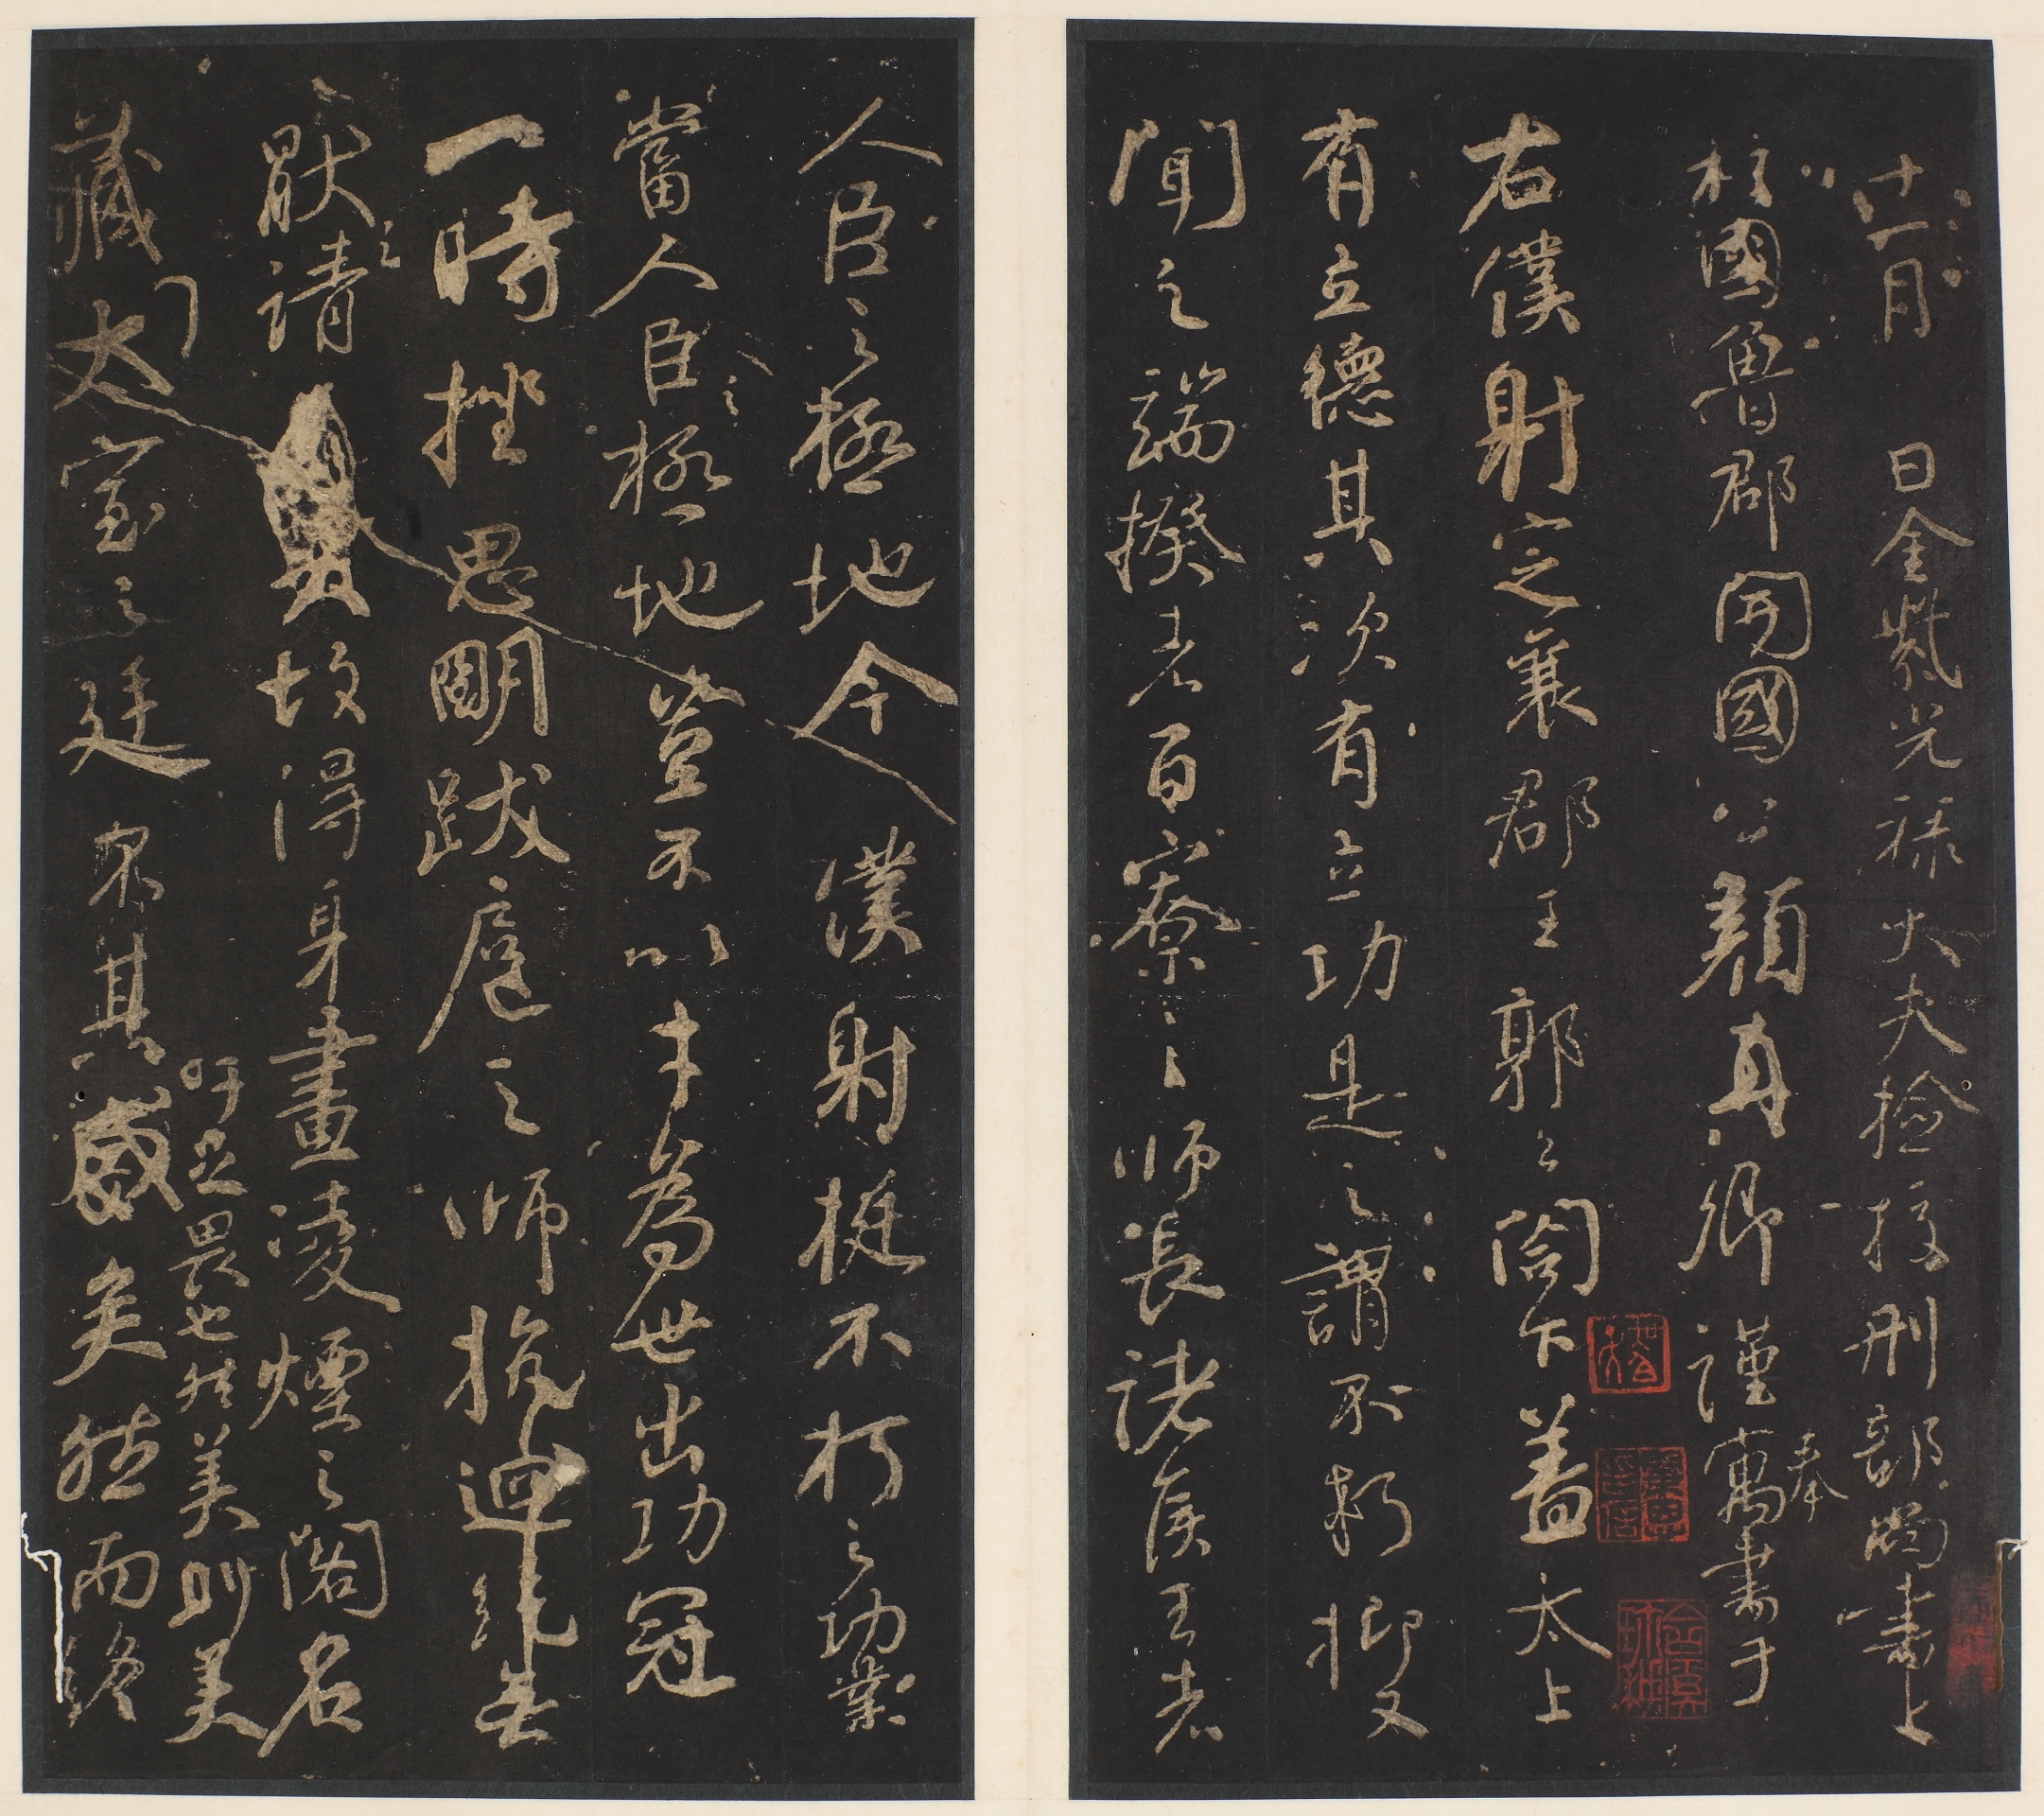 十一月　日金紫光祿大夫撿挍刑部尚書上
柱國魯郡開國公顏真卿謹奉寓書于
右僕射定襄郡王郭公閤下蓋太上
有立德其次有立功是之謂不朽抑又
聞之端揆者百寮之師長諸侯王者
人臣之極地今僕射挺不朽之功業
當人臣之極地豈不以才為世出功冠
一時挫思明跋扈之師抗迴紇無
猒之請故得身畫凌煙之閣名
藏太室之廷
吁足畏也然美則美
眾其盛矣然而終